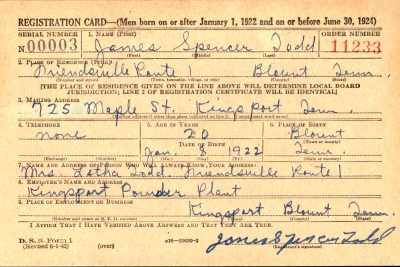 REGISTRATION CARD—(Men born on or after January 1, 1922 and on or before June 30, 1924)
SERIAL NUMBER 1. NAME (Print) ORDER NUMBER
N 00003 James Spencer Todd 11233
2. PLACE OF RESIDENCE (Print)
Friendsville Route 1 Blount Tenn.
(Town, township, village, or city) (County) (State)
[THE PLACE OF RESIDENCE GIVEN ON THE LINE ABOVE WILL DETERMINE LOCAL BOARD
JURISDICTION; LINE 2 OF REGISTRATION CERTIFICATE WILL BE IDENTICAL]
3. MAILING ADDRESS
725 Maple St. Kingsport Tenn.
[Mailing address if other than place indicated on line 2. If same insert word same]
4. TELEPHONE 5. AGE IN YEARS 6. PLACE OF BIRTH
none 20 Blount
DATE OF BIRTH (Town or county)
Jan 8 1922 Tenn.
(Exchange) (Number) (Mo.) (Day) (Yr.) (State or country)
7. NAME AND ADDRESS OF PERSON WHO WILL ALWAYS KNOW YOUR ADDRESS
Mrs. Letha Todd Friendsville Route 1
8. EMPLOYER'S NAME AND ADDRESS
Kingsport Powder Plant
9. PLACE OF EMPLOYMENT OR BUSINESS
Kingsport Blount Tenn.
(Number and street or R. F. D. number) (Town) (County) (State)
I AFFIRM THAT I HAVE VERIFIED ABOVE ANSWERS AND THAT THEY ARE TRUE.
D. S. S. Form 1
(Revised 6-9-42) (over) 16—21630-2 James Spencer Todd
(Registrant's signature)